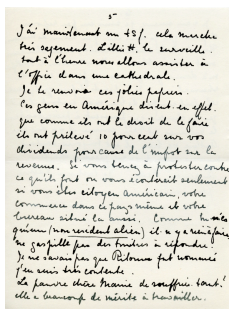 5
J'ai maintenant un 45/. cela marche
très sagement. Lilli H. le surveille.
tout à l'heure nous allons assister à
l'office dans une cathédrale.
Je te renvoie ces jolis papiers.
Ces gens en Amérique disent en effet
que comme ils ont le droit de le faire
ils ont prélevé 10 pour cent sur vos
dividends pour cause de l'impôt sur la
revenue. Si vous tenez à protester contre
ce qu'ils font on vous écouterait seulement
si vous êtes citoyen américain, votre
commerce dans ce pays même et votre
bureau situé là aussi. Comme tu n'es
qu'un (non resident alien) il n'y a rien à faire,
ne gaspille pas des timbres à répondre.
Je ne savais pas que fut nommé
j'en suis très contente.
La pauvre chère Mamie de souffrir tant!
elle a beaucoup de mérite à travailler.